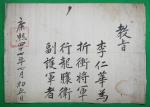 教旨
李仁華為
折衝將軍
行龍驤衛
副護軍者
康熙四十年七月初五日